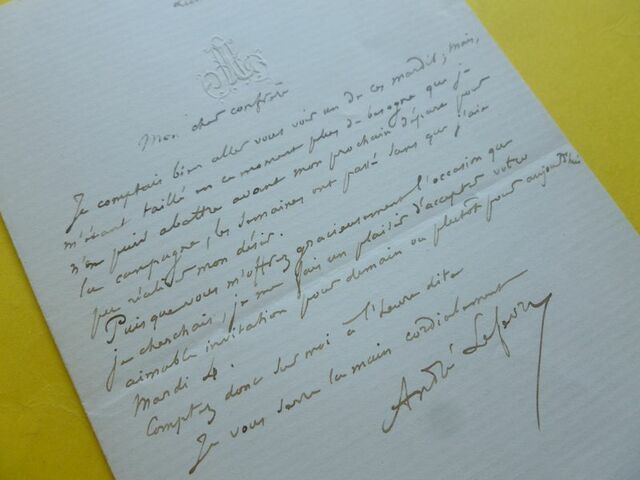 Mon cher confrère
Je comptais bien aller vous voir un de ces mardis ; mais,
m'étant taillé en ce moment plus de besogne que je
n'en puis abattre avant mon prochain départ pour
la campagne, les semaines ont passé sans que j'aie
pu réaliser mon désir.
Puisque vous m'offrez gracieusement l'occasion que
je cherchais, je me fais un plaisir d'accepter votre
aimable invitation pour demain ou plutôt pour aujourd'hui
Mardi 4.
Comptez donc sur moi à l'heure dite
Je vous serre la main cordialement
André Lefèvre